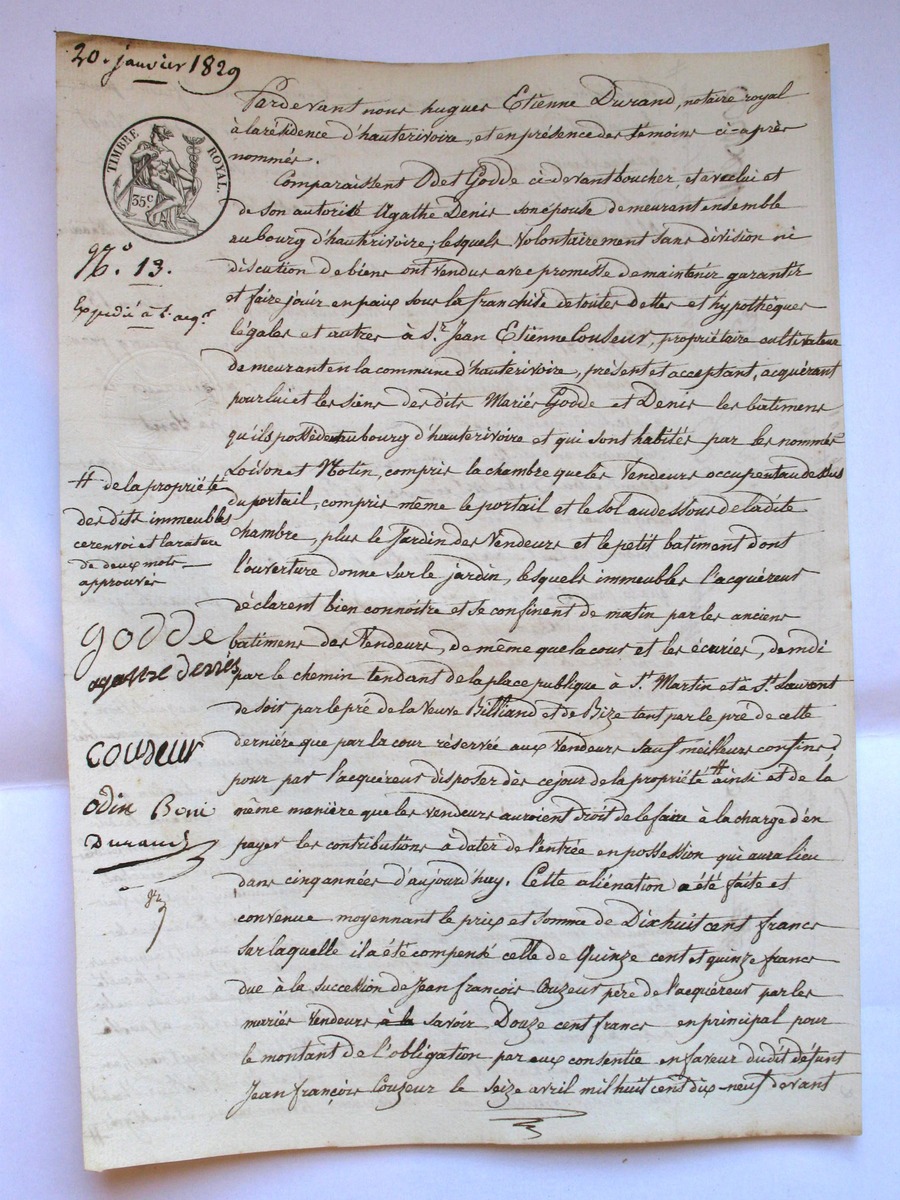 20. janvier 1829
TIMBRE ROYAL.
35c
No. 13.
Expédié à l'acqr
Pardevant nous hugues Etienne Durand, notaire royal
à la résidence d'hauterivoire, et en présence des témoins ci-après
nommés.
Comparaissent Odet Godde ci-devant boucher, et avec lui et
de son autorité Agathe Denis son épouse demeurant ensemble
au bourg d'hauterivoire; lesquels volontairement sans division ni
discution de biens ont vendus avec promesse de maintenir garantir
et faire jouir en paix sous la franchise de toutes dettes et hypothèques
légales et autres à Sr. Jean Etienne Couzeur, propriétaire cultivateur
demeurant en la commune d'hauterivoire, présent et acceptant, acquérant
pour lui et les siens des dits Mariés Godde et Denis les bâtimens
qu'ils possèdent au bourg d'hauterivoire et qui sont habités par les nommés
Loison et Notin, compris la chambre que les Vendeurs occupent au dessus
du portail, compris même le portail et le sol au dessous de la dite
chambre, plus le Jardin des Vendeurs et le petit batiment dont
l'ouverture donne sur le jardin, lesquels immeubles l'acquéreur
déclarent bien connoître et se confinent de matin par les anciens
bâtimens des Vendeurs, de même que la cour et les écuries, de midi
par le chemin tendant de la place publique à St. Martin et à St. Laurent
de soir par le pré de la Veuve Billiand et de Bize tant par le pré de cette
dernière que par la cour réservée aux Vendeurs sauf meilleurs confins;
pour par l'acquéreur disposer dès ce jour de la propriété # ainsi et de la
même manière que les vendeurs auroient droit de le faire à la charge d'en
payer les contributions à dater de l'entrée en possession qui aura lieu
dans cinq années d'aujourd'huy. Cette aliénation a été faite et
convenue moyennant le prix et somme de Dix huit cent francs
sur laquelle il a été compensé celle de Quinze cent et quinze francs
due à la succession de Jean françois Couzeur père de l'acquéreur par les
mariés Vendeurs à la savoir Douze cent francs en principal pour
le montant de l'obligation par eux consentie en faveur dudit défunt
Jean françois Couzeur le seize avril mil huit cent dix-neuf devant
# de la propriété
des dits immeubles
ce renvoi et la rature
de deux mots
approuvés
godde
agathe denis
couzeur
odin Boni
Durand